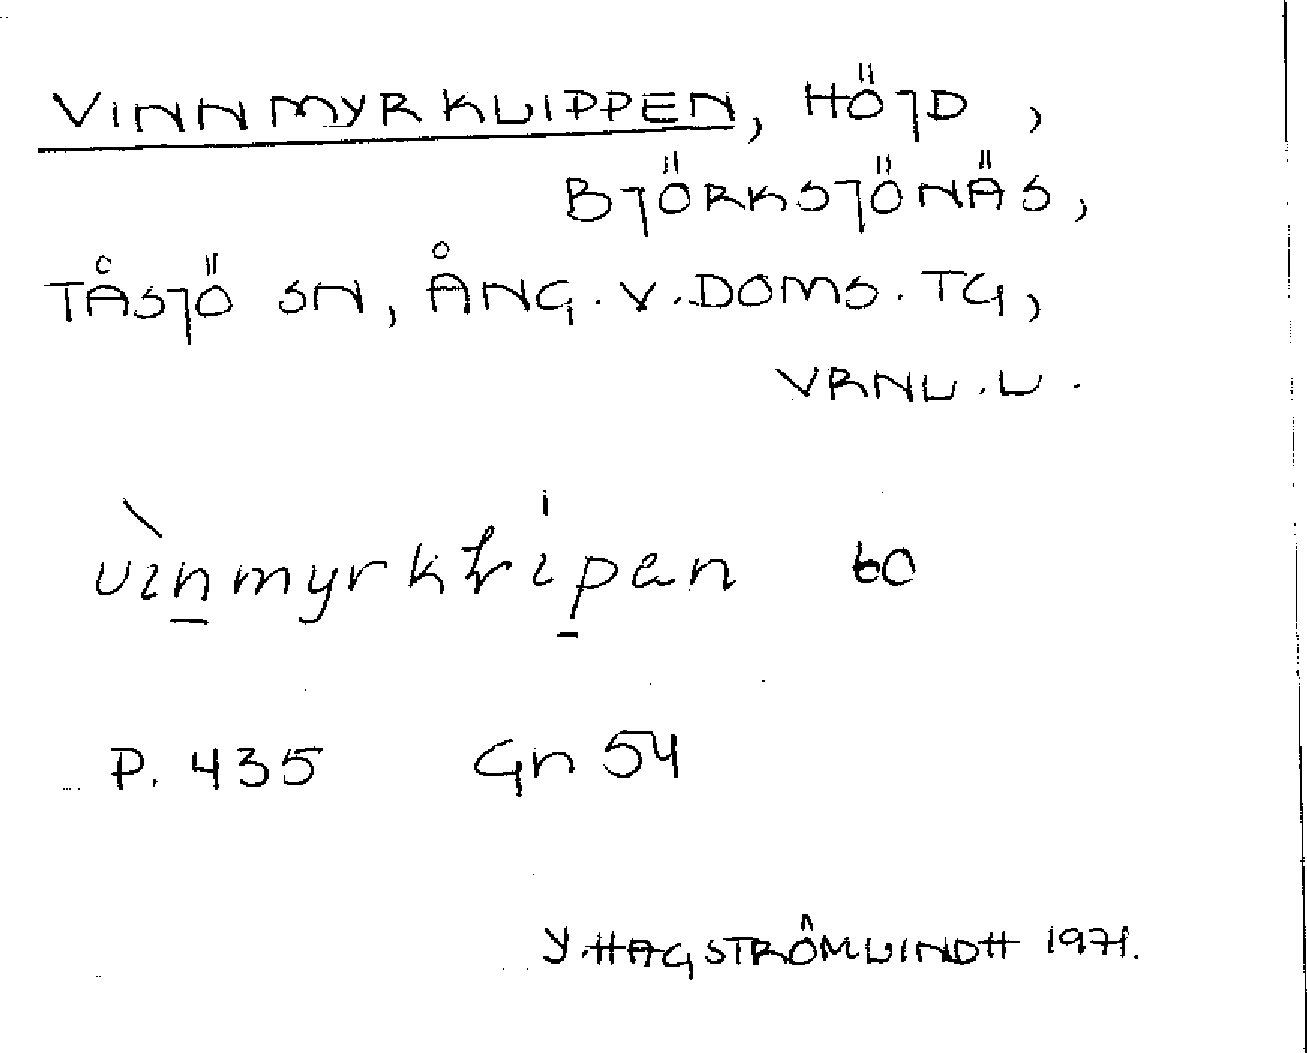 VINNMYRKLIPPEN, HÖJD,
BJÖRKSJÖNÄS,
TÅSJÖ SN, ÅNG. V. DOMS. TG,
VRNL. L.
60
P. 435 Gn 54
Y. HAGSTRÖM LINDH 1971.